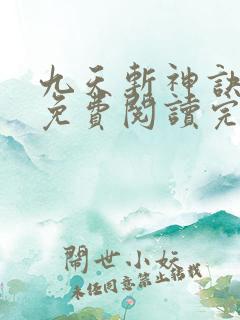 九天斬神訣
免費閱讀完
鬧世小妖
未經同意禁止轉載